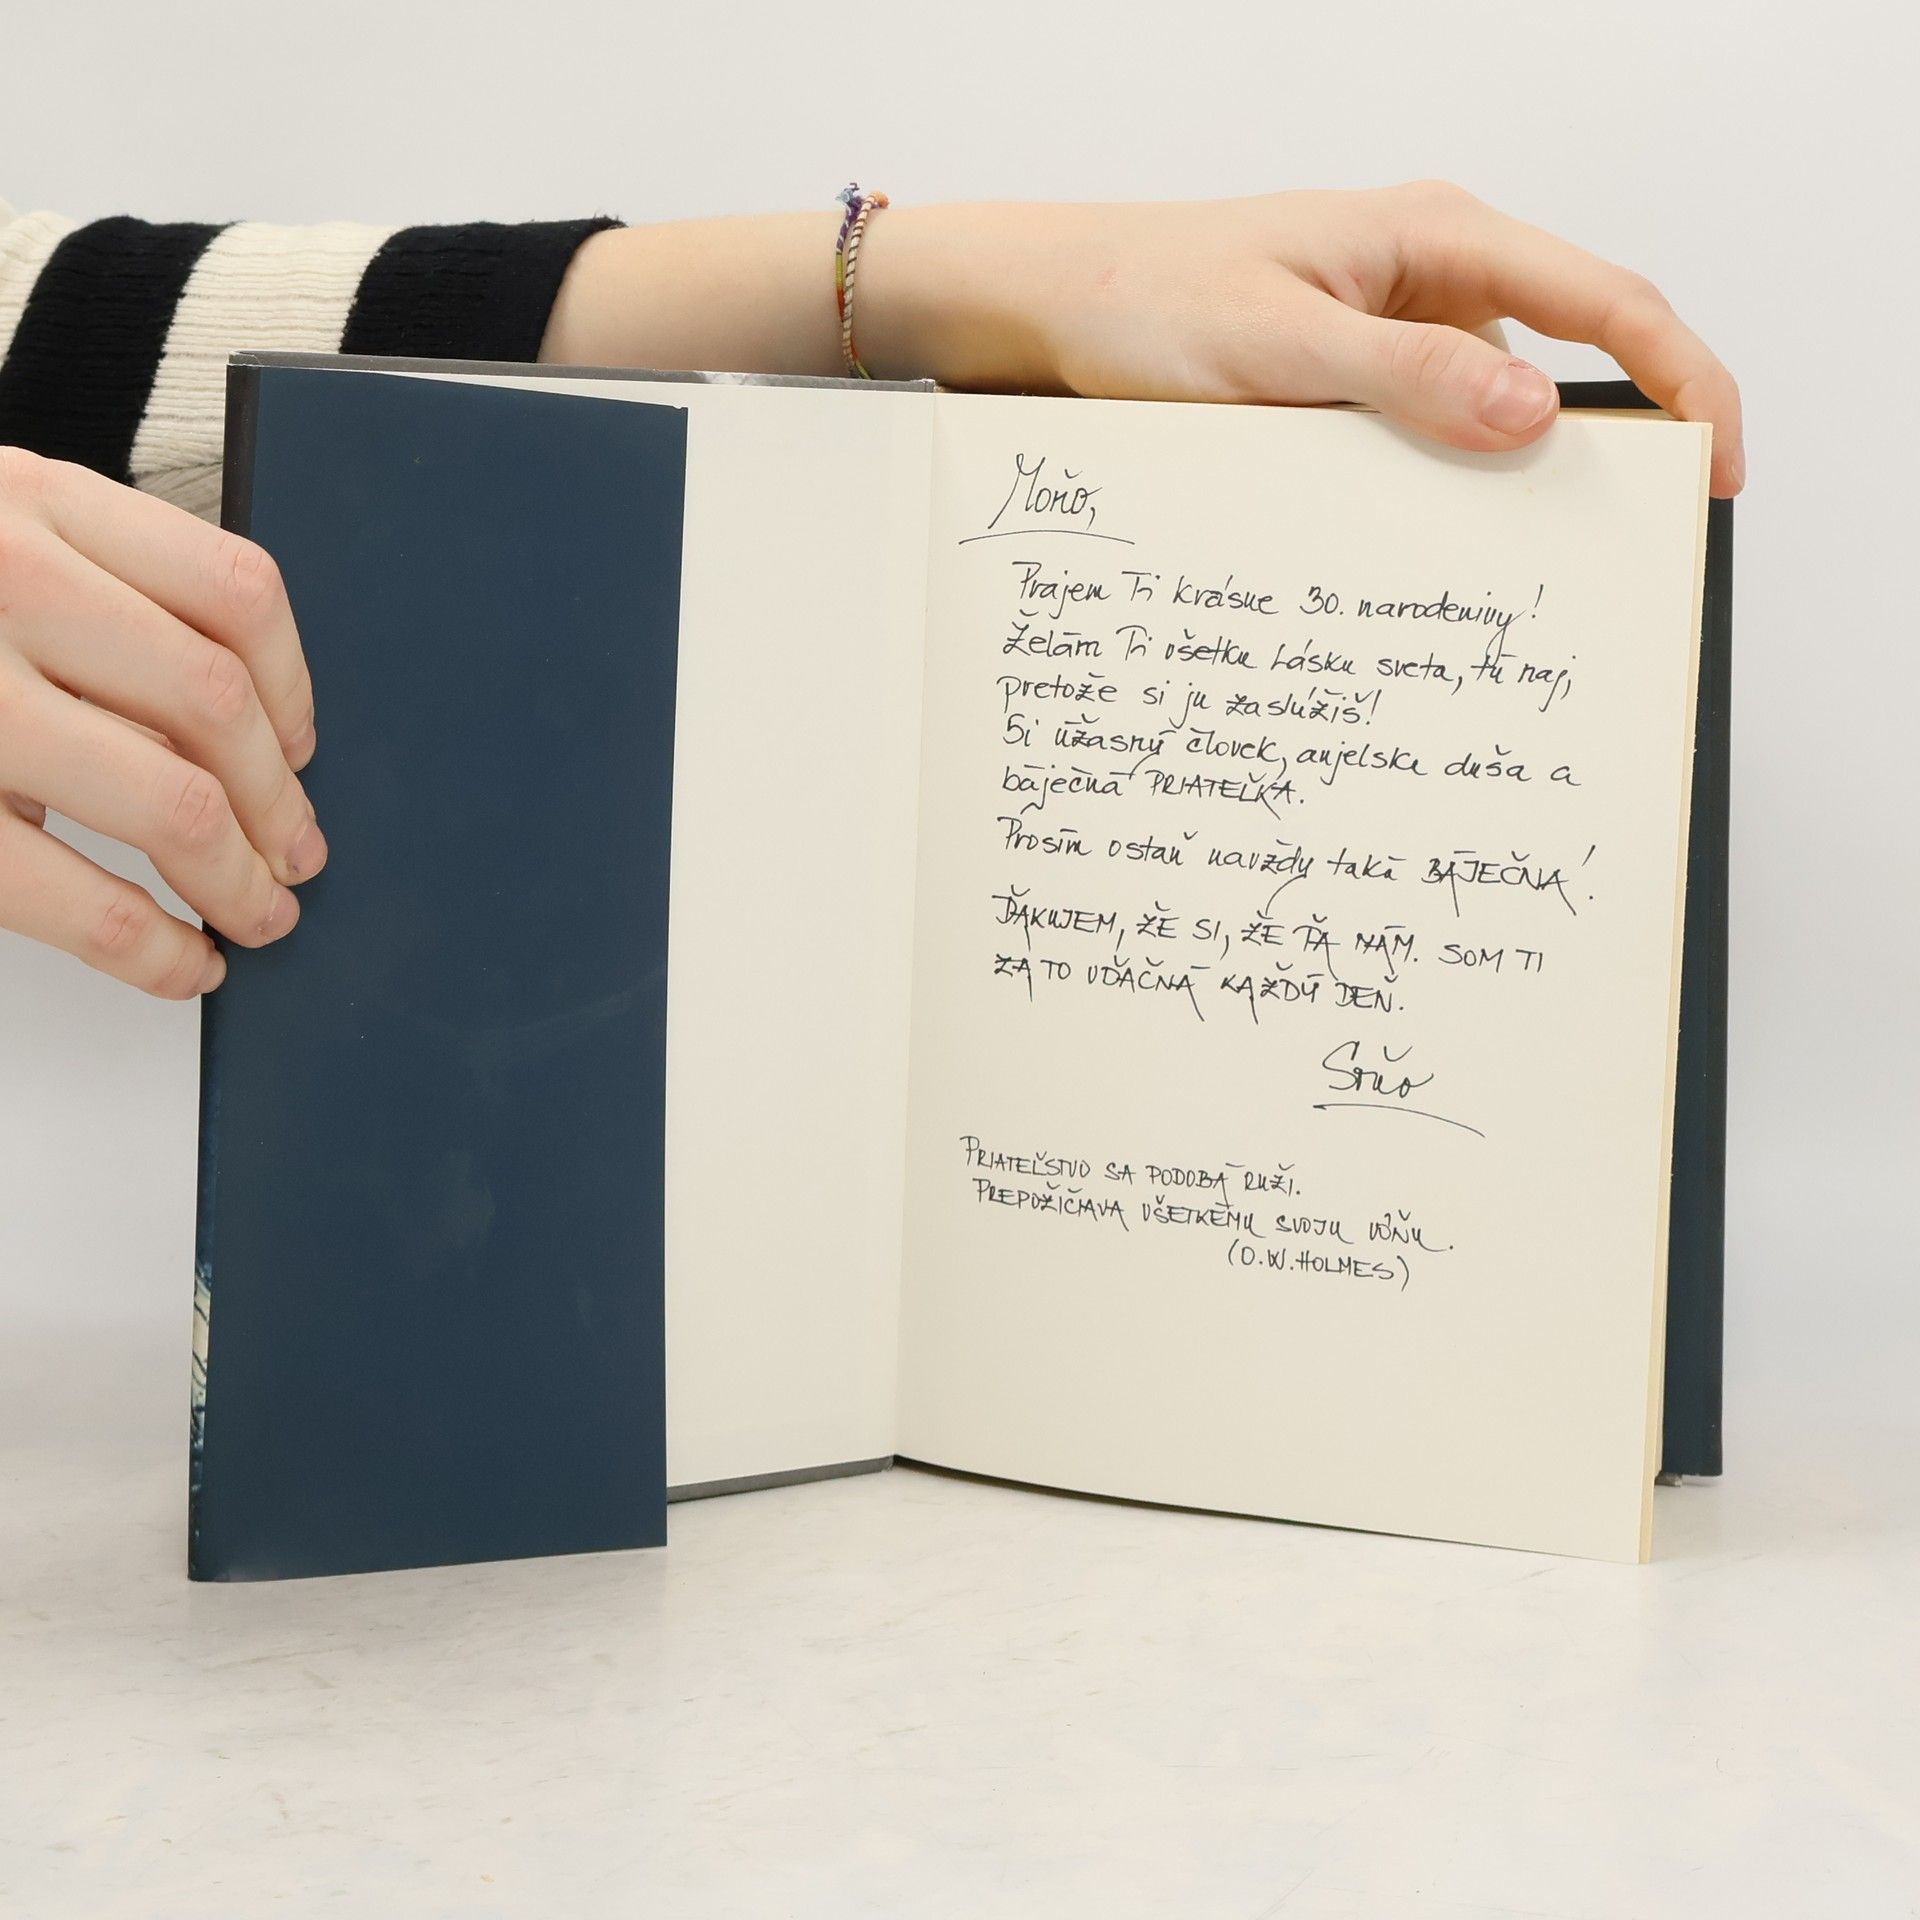 Moňo,
Prajem Ti krásne 30. narodeniny!
Želám Ti všetku lásku sveta, tú naj,
pretože si ju zaslúžiš!
Si úžasný človek, anjelská duša a
báječná PRIATEĽKA.
Prosím ostaň navždy taká BÁJEČNÁ!
ĎAKUJEM, ŽE SI, ŽE ŤA MÁM. SOM TI
ZA TO VĎAČNÁ KAŽDÝ DEŇ.
PRIATEĽSTVO SA PODOBÁ RUŽI.
PREPOŽIČIAVA VŠETKÉMU SVOJU VÔŇU.
(O.W.HOLMES)